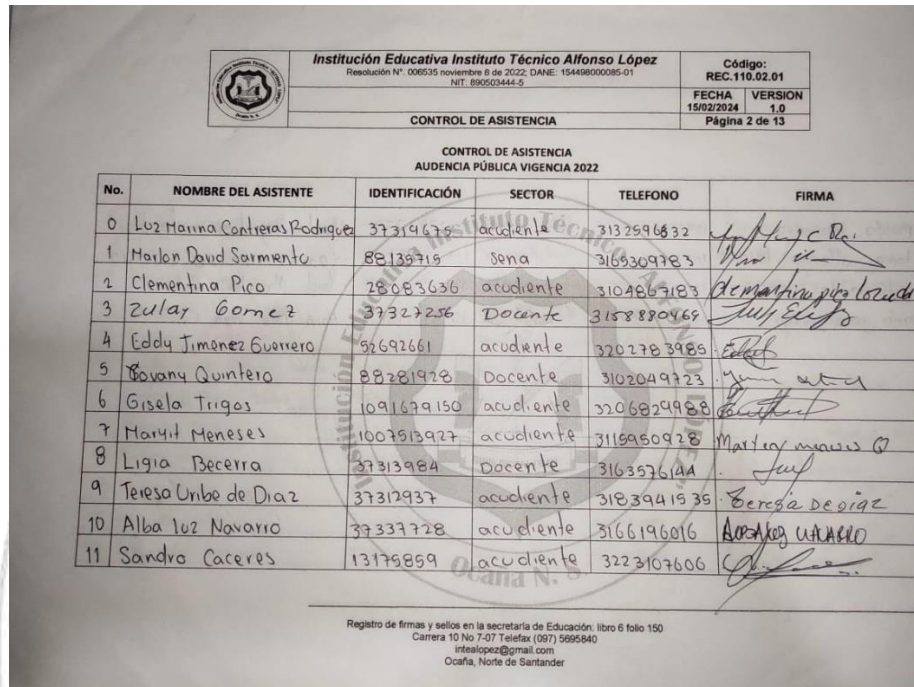 Institución Educativa Instituto Técnico Alfonso López
Resolución N°. 006535 noviembre 8 de 2022; DANE: 154498000085-01
NIT: 890503444-5
CONTROL DE ASISTENCIA
Código:
REC.110.02.01
FECHA VERSION
15/02/2024 1.0
Página 2 de 13
CONTROL DE ASISTENCIA
AUDENCIA PÚBLICA VIGENCIA 2022
No. NOMBRE DEL ASISTENTE IDENTIFICACIÓN SECTOR TELEFONO FIRMA
0 Luz Marina Contreras Rodriguez 37319675 acudiente 3132596832
1 Marlon David Sarmiento 88135715 Sena 3165309783
2 Clementina Pico 28083636 acudiente 3104867183
3 Zulay Gomez 37327256 Docente 3158880469
4 Eddy Jimenez Guerrero 52692661 acudiente 3202783985
5 Yovany Quintero 88281928 Docente 3102049723
6 Gisela Trigos 1091679150 acudiente 3206829988
7 Maryit Meneses 1007513927 acudiente 3115950928
8 Ligia Becerra 37313984 Docente 3163576144
9 Teresa Uribe de Diaz 37312937 acudiente 3183941535 Teresa De Diaz
10 Alba luz Navarro 37337728 acudiente 3166196016
11 Sandro Caceres 13175859 acudiente 3223107606
Ocaña N. S.
Registro de firmas y sellos en la secretaría de Educación: libro 6 folio 150
Carrera 10 No 7-07 Telefax (097) 5695840
intealopez@gmail.com
Ocaña, Norte de Santander